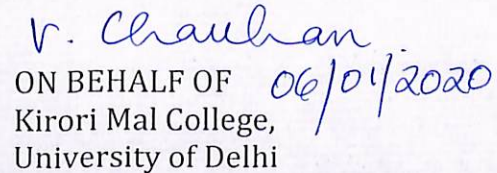 V. Chauhan
ON BEHALF OF 06/01/2020
Kirori Mal College,
University of Delhi